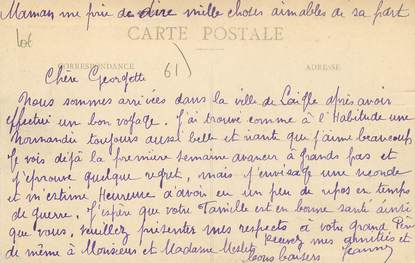 Maman me prie de dire mille choses aimables de sa part
Lot
CARTE POSTALE
CORRESPONDANCE
61
ADRESSE
Chère Georgette
Nous sommes arrivées dans la ville de Laigle après avoir
effectué un bon voyage. J'ai trouvé comme à l'Habitude une
Normandie toujours aussi belle et riante que j'aime beaucoup
Je vois déjà la première semaine avancer à grands pas et
j'éprouve quelque regret, mais j'envisage une seconde
et m'estime Heureuse d'avoir eu un peu de repos en temps
de guerre. J'espère que votre Famille est en bonne santé ainsi
que vous, veuillez présenter mes respects à votre Grand Père
de même à Monsieur et Madame
Recevez mes amitiés et
bons baisers Jeanne